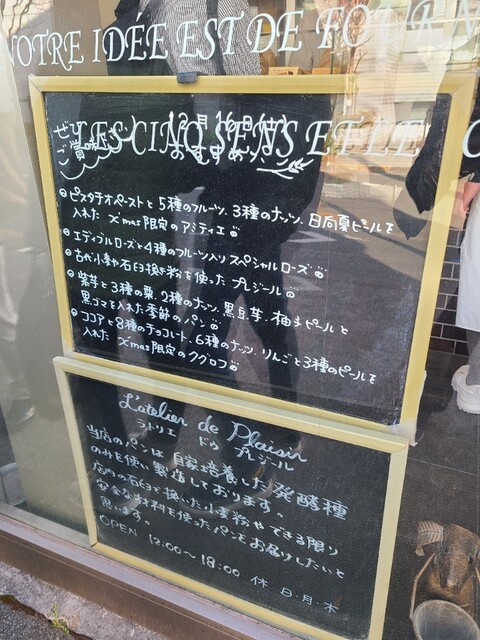 NOTRE IDÉE EST DE FOURN
12月16日(土)
おすすめパン
ぜひ
ご賞味下さい
LES CINQ SENS ET LE
ピスタチオペーストと5種のフルーツ、3種のナッツ、日向夏ピールを
入れた X'mas限定のアミティエ
エディブルローズと4種のフルーツ入りスペシャルローズ
古代小麦や石臼挽き粉を使った プレジール
紫芋と3種の栗、2種のナッツ、黒豆、芋、柚子ピールと
黒ゴマを入れた季節のパン
ココアと8種のチョコレート、6種のナッツ、りんごと3種のピールを
入れた X'mas限定のクグロフ
L'atelier de Plaisir
ラトリエ ドゥ プレジール
当店のパンは自家培養した発酵種
のみを使い製造しております。
店内の石臼で挽いた小麦粉やできる限り
安全な材料を使ったパンをお届けしたいと
思います。
OPEN 12:00〜18:00 休 日・月・木